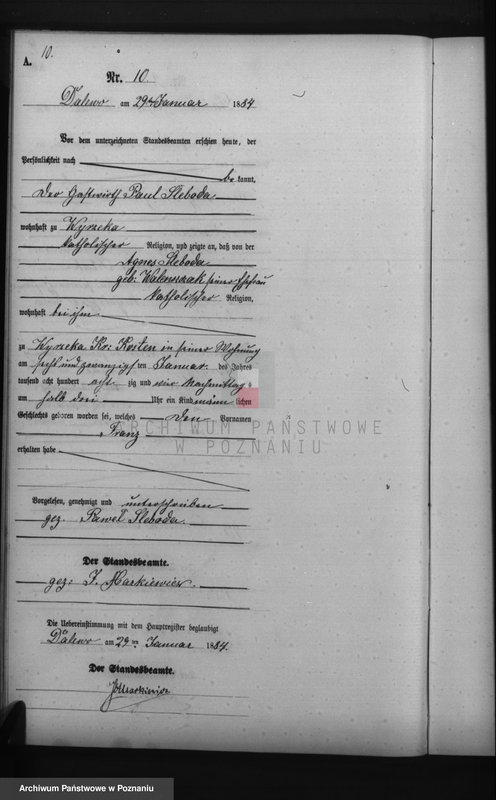 10.
A.
Nr. 10
Dalewo am 29ten Januar 1884
Vor dem unterzeichneten Standesbeamten erschien heute, der
Persönlichkeit nach
be kannt,
der Gastwirth Paul Sleboda
wohnhaft zu Wyrzeka
katholischer Religion, und zeigte an, daß von der
Agnes Sleboda
geb: Walenczak seiner Ehefrau
katholischer Religion,
wohnhaft bei ihm
zu Wyrzeka Kr: Kosten in seiner Wohnung
am sechs und zwanzigsten Januar des Jahres
tausend acht hundert acht zig und vier Nachmittag s
um halb drei Uhr ein Kind männ lichen
Geschlechts geboren worden sei, welches den Vornamen
Franz
erhalten habe
Vorgelesen, genehmigt und unterschrieben
gez. Pawel Sleboda.
Der Standesbeamte.
gez: J. Markiewicz.
Die Uebereinstimmung mit dem Hauptregister beglaubigt
Dalewo am 29ten Januar 1884.
Der Standesbeamte.
JMarkiewicz
ARCHIWUM PAŃSTWOWE
W POZNANIU
Archiwum Państwowe w Poznaniu